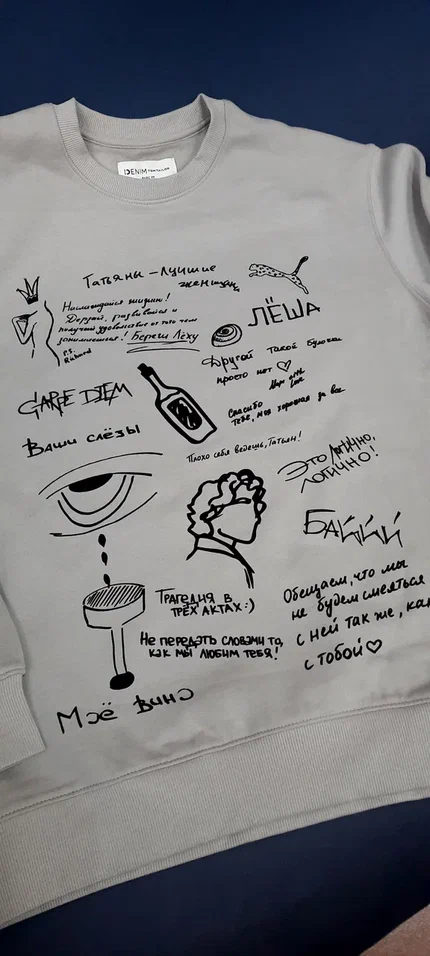 DENIM TOM TAILOR
Татьяны – лучшие
женщины
Наслаждайся жизнью!
Дерзай, развивайся и
получай удовольствие от того чем
занимаешься! Береги Лёху
P.S.
Richard
ЛЁША
Другой такой булочки
просто нет ♡
Спасибо
тебе, моя хорошая за все
CARPE DIEM
Ваши слёзы
Плохо себя ведешь, Татьян!
Это логично,
логично!
БАЙЙЙ
Трагедия в
трёх актах:)
Не передать словами то,
как мы любим тебя!
Обещаем, что мы
не будем смеяться
с ней так же, как
с тобой ♡
Моё вино